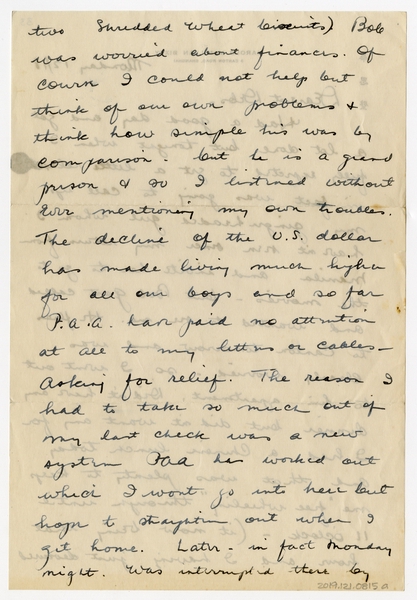 two Shredded Wheat biscuits) Bob
was worried about finances. Of
course I could not help but
think of our own problems &
think how simple his was by
comparison. but he is a grand
prison & so I listened without
Ever mentioning my own troubles.
The decline of the U.S. dollar
has made living much higher
for all our boys and so far
P.A.A. have paid no attention
at all to my letters or cables -
asking for relief. The reason I
had to take so much out of
my last check was a new
system PAA has worked out
which I wont go into here but
hope to straighten out when I
get home. Later - in fact Monday
night. Was interrupted there by
2019.121.0815a